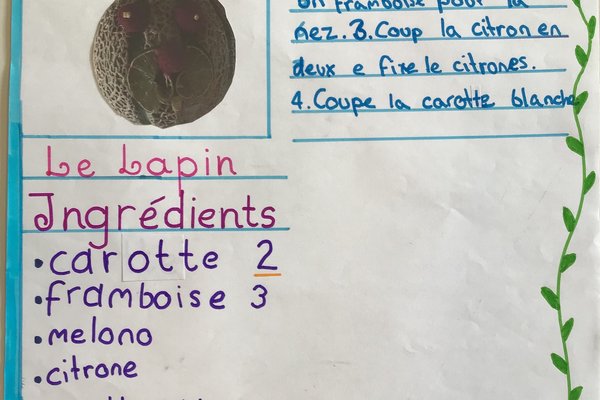 un framboise pour la
nez. 3. Coup la citron en
deux e fixe le citrones.
4. Coupe la carotte blanche
Le Lapin
Ingrédients
• carotte 2
• framboise 3
• melono
• citrone